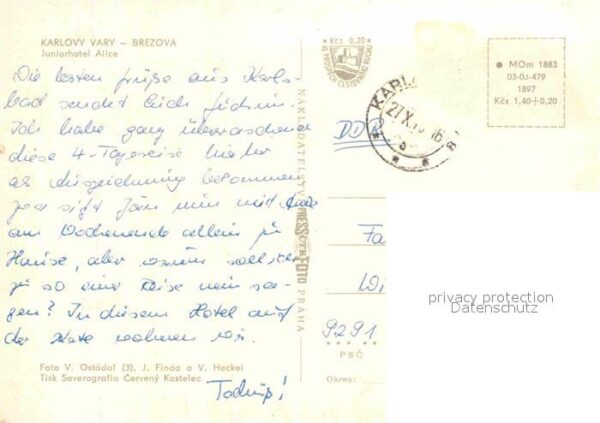 KARLOVY VARY – BŘEZOVÁ
Juniorhotel Alice
Die besten Grüße aus Karls-
bad sendet Euch
Ich habe ganz überraschend
diese 4-Tagereise hierher
als Auszeichnung bekommen
sitzt nun mit
am Wochenende allein zu
Hause, aber warum sollte
zu so einer Reise nein sa-
gen? In diesem Hotel auf
der Karte wohnen wir.
Tschüß!
Foto V. Ostádal (3), J. Finda a V. Heckel
Tisk Severografia Červený Kostelec
NAKLADATELSTVÍ
PRESSFOTO
PRAHA
Kčs 0,20
VE PROSPĚCH CESTOVNÍHO RUCHU
KARLO
27.X.
DDR
MOm 1883
03-03-479
1897
Kčs 1,40+0,20
Fa
Wi
9291
PSČ
Okres:
privacy protection
Datenschutz